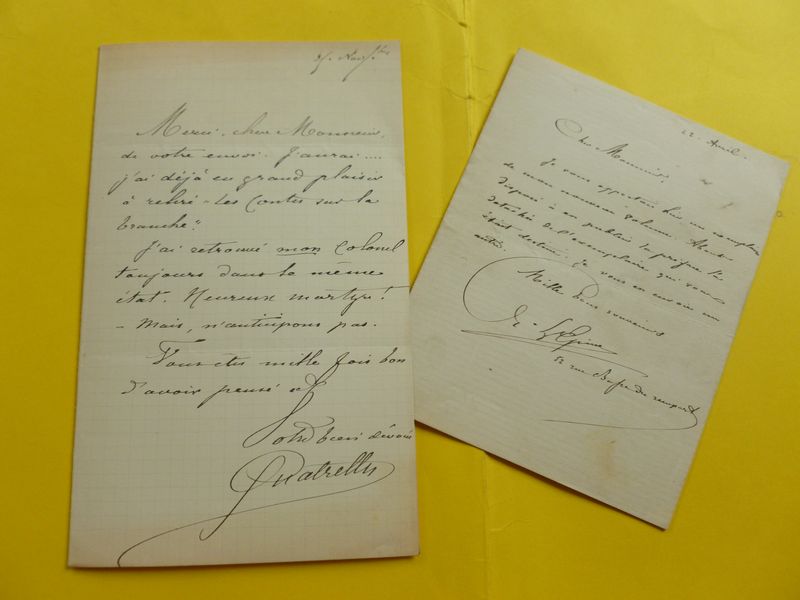 25. Nov.bre
Merci, cher Monsieur,
de votre envoi. J'aurai....
j'ai déjà eu grand plaisir
à relire "Les Contes sur la
branche".
J'ai retrouvé mon Colonel
toujours dans le même
état. Heureux martyr!
- Mais, n'anticipons pas.
Vous êtes mille fois bon
d'avoir pensé à
Votre bien dévoué
Quatrelles
22. Avril.
Cher Monsieur,
Je vous apportais hier un exemplaire
de mon nouveau volume.
disposé à en publier la préface l'a
détachée de l'exemplaire qui vous
était destiné. Je vous en envoie un
autre.
Mille bons souvenirs
E. L'Epine
52 rue Basse du rempart